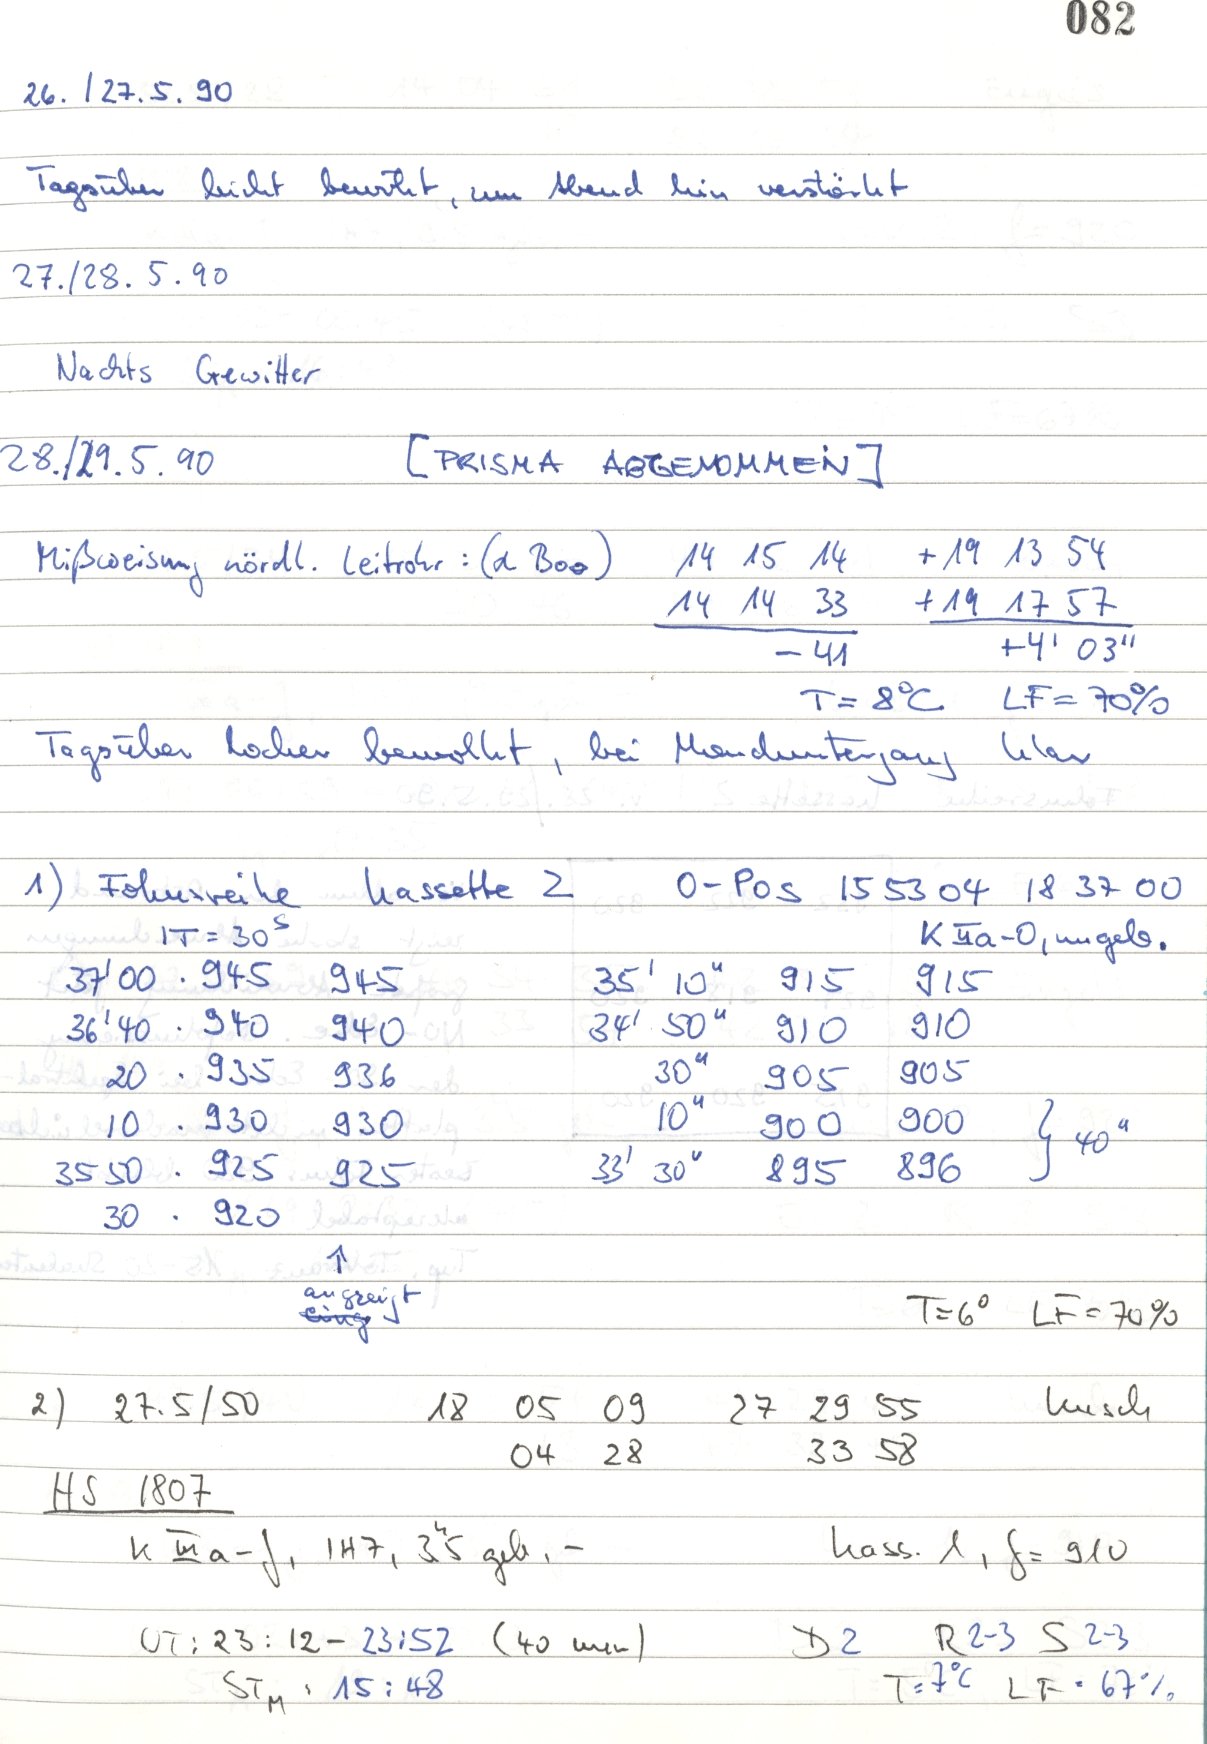 082
26./27.5.90
Tagsüber leicht bewölkt, zum Abend hin verstärkt
27./28.5.90
Nachts Gewitter
28./29.5.90 [PRISMA ABGENOMMEN]
Mißweisung nördl. Leitrohr: (α Boo) 14 15 14 +19 13 54
14 14 33 +19 17 57
-41 +4' 03"
T = 8°C LF = 70%
Tagsüber locker bewölkt, bei Monduntergang klar
1) Fokusreihe Kassette 2 0-Pos 15 53 04 18 37 00
IT = 30s K IIIa-O, ungeb.
37'00 . 945 945 35' 10" 915 915
36'40 . 940 940 34' 50" 910 910
20 . 935 936 30" 905 905
10 . 930 930 10" 900 900 } 40"
35 50 . 925 925 33' 30" 895 896
30 . 920
↑
angezeigt
T=6° LF=70%
2) 27.5/50 18 05 09 27 29 55
04 28 33 58
HS 1807
K IIIa-J, 1H7, 35 geb. - Kass. 1, f = 910
UT: 23:12-23:52 (40 min) D2 R2-3 S2-3
STM: 15:48 T=7°C LF=67%